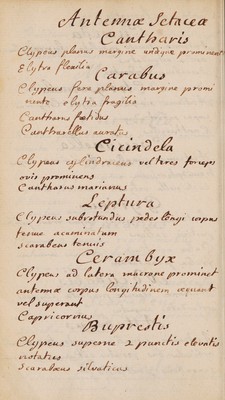 Antennæ Setacea
Cantharis
Clypeus planus margine undique prominent
Elytra flexilia
Carabus
Clypeus fere planus margine promi
nente elytra fragilia
Cantharus fœtidus
Cantharellus auratus
Cicindela
Clypeus cylindraceus vel teres forceps
ovis prominens
Cantharus marianus
Leptura
Clypeus subrotundus pedes longi corpus
tenue acuminatum
scarabeus tenuis
Cerambyx
Clypeus ad latera mucrone prominet
antennæ corpus longitudinem æquant
vel superant
Capricornius
Buprestis
Clypeus superne 2 punctis elevatis
notatus
scarabæus silvaticus